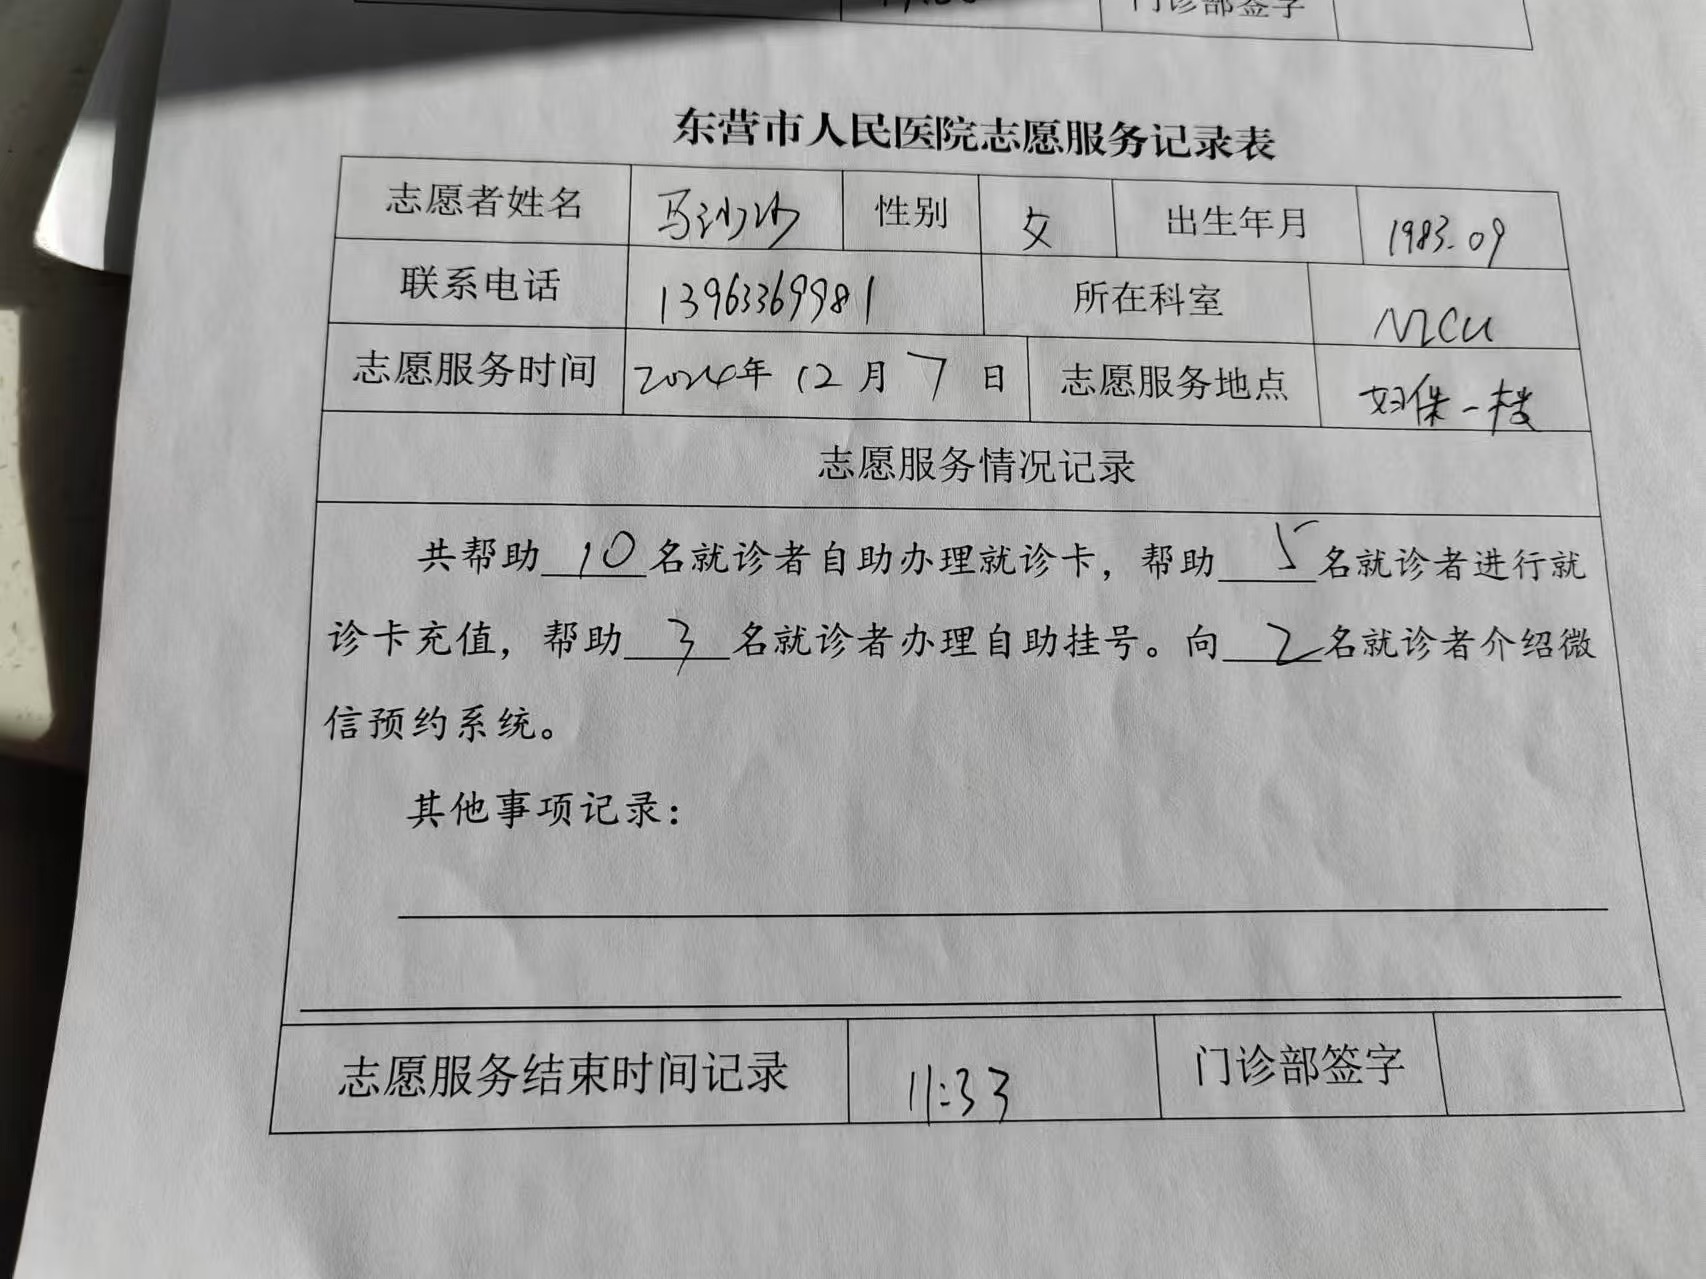 门诊部签字
东营市人民医院志愿服务记录表
志愿者姓名 马沙沙 性别 女 出生年月 1983.09
联系电话 13963369981 所在科室 NICU
志愿服务时间 2024年 12月 7日 志愿服务地点 妇保一楼
志愿服务情况记录
共帮助10名就诊者自助办理就诊卡，帮助5名就诊者进行就
诊卡充值，帮助3名就诊者办理自助挂号。向2名就诊者介绍微
信预约系统。
其他事项记录：
志愿服务结束时间记录 11:33 门诊部签字